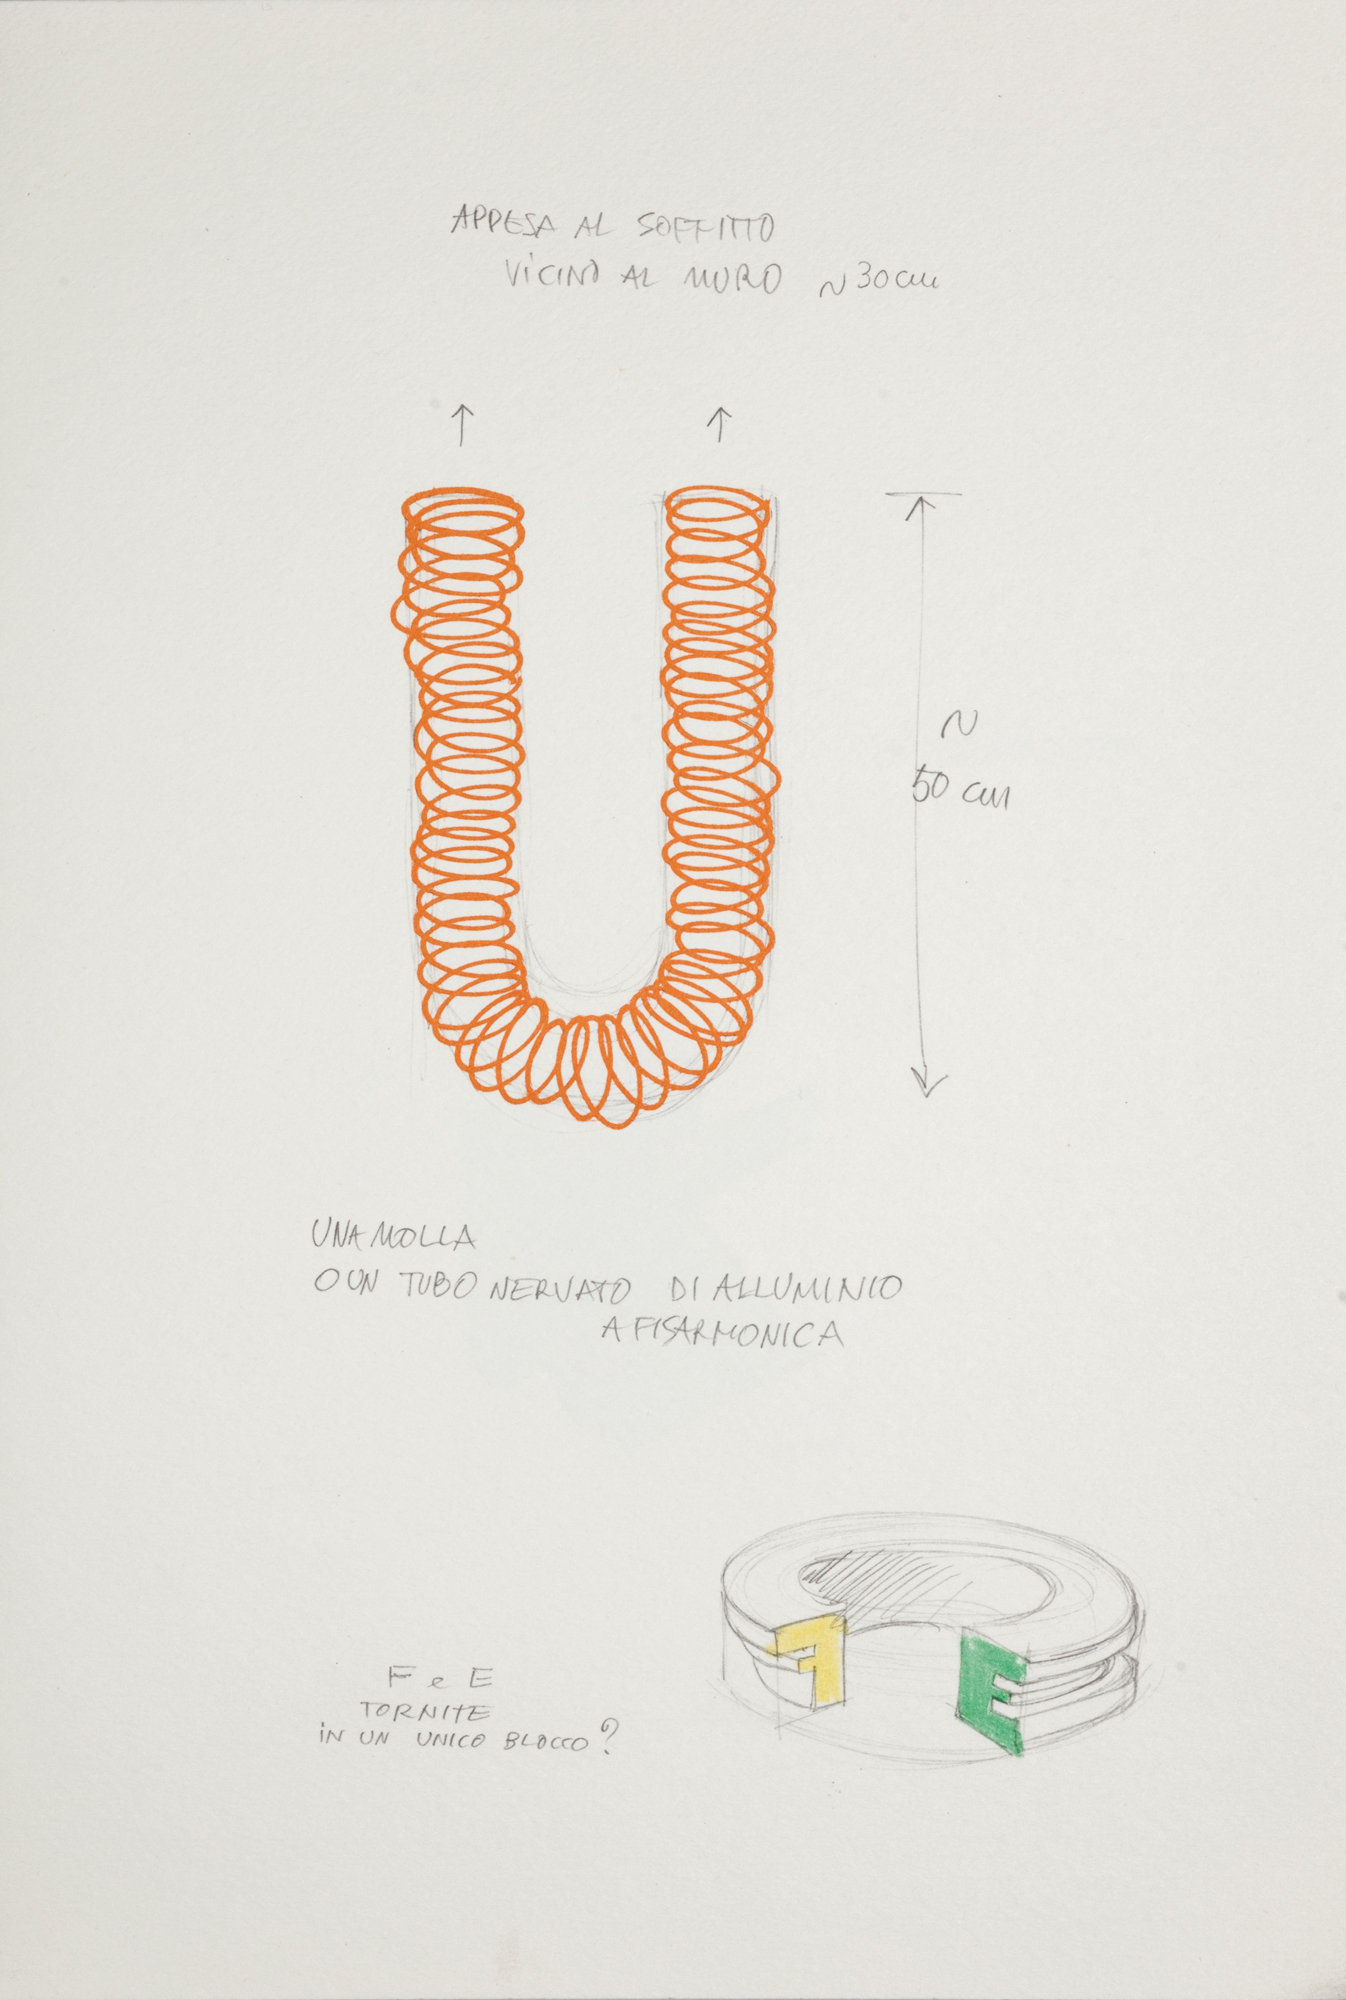 APPESA AL SOFFITTO
VICINO AL MURO ~30cm
~
50 cm
UNA MOLLA
O UN TUBO NERVATO DI ALLUMINIO
A FISARMONICA
F e E
TORNITE
IN UN UNICO BLOCCO?
F E